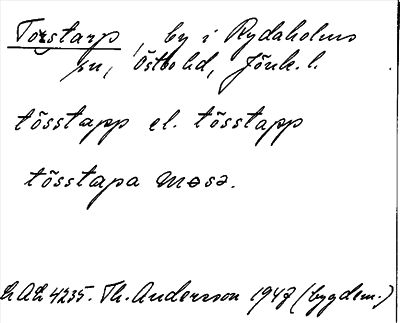 Torstarp, by i Rydaholms
sn, Östbo hd, Jönk. l.
tôsstapp el. tôsstapp
tôsstapa mɵsə.
LAL 4235. Th. Andersson 1947 (bygdem.)